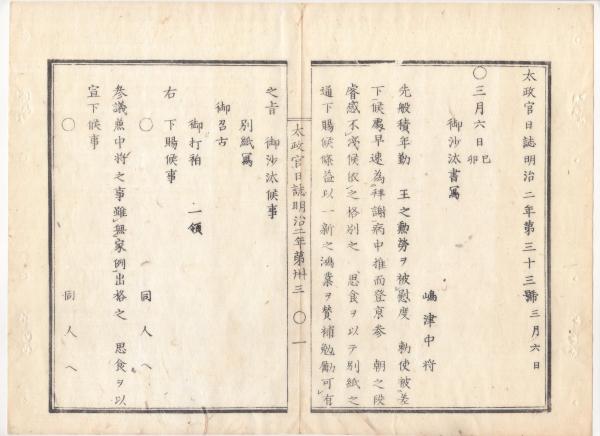 太政官日誌明治二年第三十三號 三月六日
○三月六日 己卯
御沙汰書寫
嶋津中将
先般積年勤 王之勲勞ヲ被慰度 勅使被差
下候處早速為拜謝病中推而登京参 朝之段
睿感不淺候依之格別之 思食ヲ以テ別紙之
通下賜候條益以一新之鴻業ヲ賛補勉勵可有
太政官日誌明治二年第卅三 ○一
之旨 御沙汰候事
別紙寫
御召古
御打袙 一領
右 下賜候事
○ 同人へ
参議兼中将之事雖無家例出格之 思食ヲ以
宣下候事
○ 同人へ